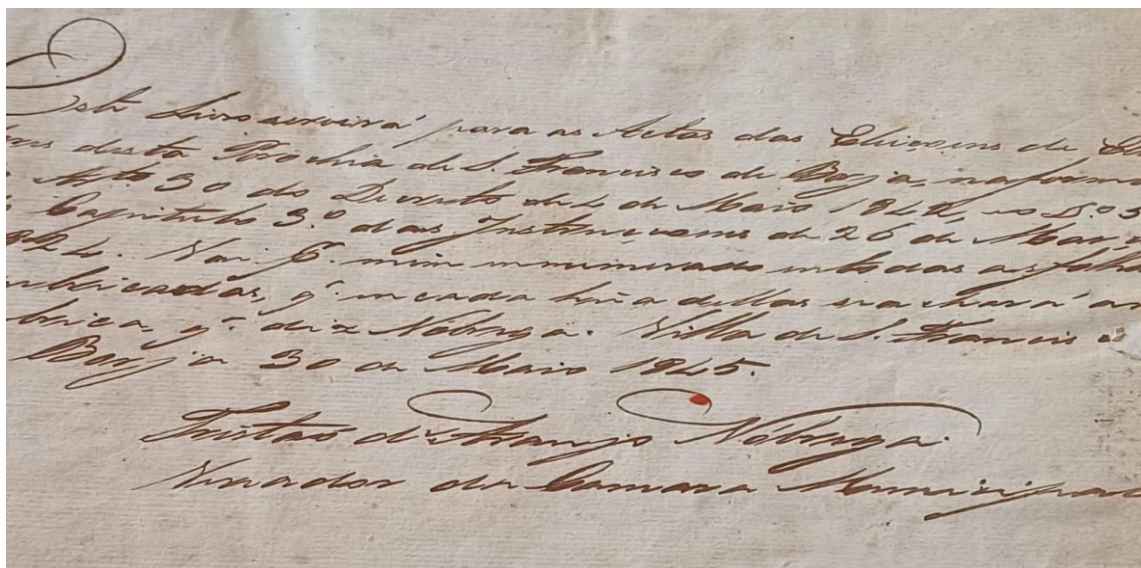 Este Livro servirá para as Actas das Eleiçoens de
desta Parochia de S. Francisco de Borja, na forma
Art.º 30 do Decreto de 4 de Maio 1842, e o §.º 3
Capitulo 3.º das Instrucçoens de 26 de Março
1824. Vai p.r mim innumerado em todas as folhas
rubricadas, q.' em cada huã dellas se achará a
brica, q.' diz Nóbrega. Villa de S. Francisco
Borja 30 de Maio 1845.
Tristaõ d'Araujo Nóbrega.
Vereador da Camara Municipal